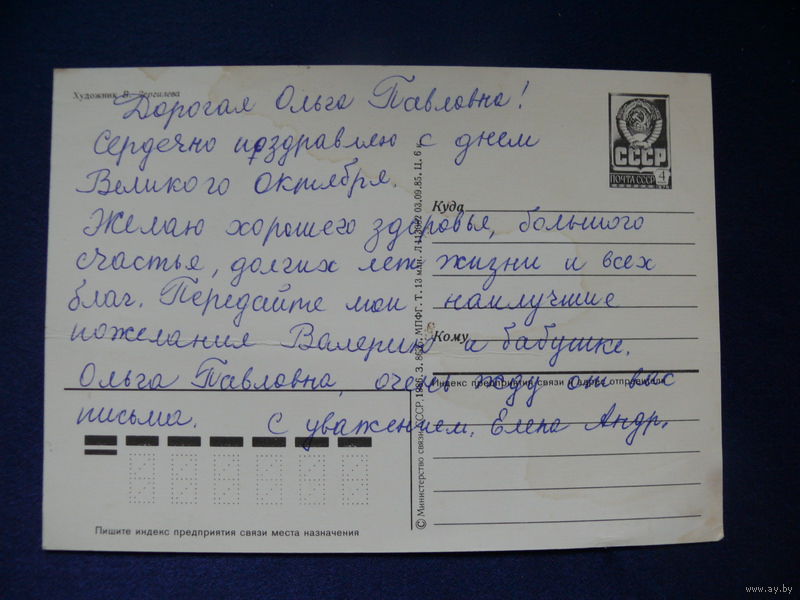 Художник В. Зергилева
Дорогая Ольга Павловна!
Сердечно поздравляю с днем
Великого Октября.
Желаю хорошего здоровья, большого
счастья, долгих лет жизни и всех
благ. Передайте мои наилучшие
пожелания Валерию и бабушке.
Ольга Павловна, очень жду от вас
письма. С уважением, Елена Андр.
СССР
ПОЧТА СССР 4
Куда
Кому
Индекс предприятия связи и адрес отправителя
Пишите индекс предприятия связи места назначения
© Министерство связи СССР, 1986. З. МПФГ. Т. 13 млн. 03.09.85. Ц. 6 к.
www.ay.by